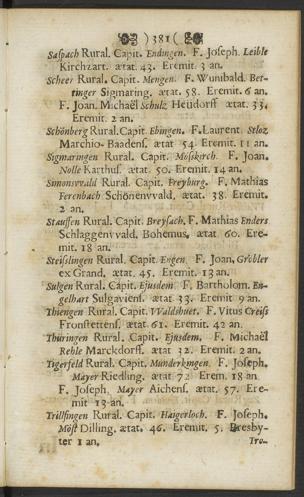 ) 381 (
Saspach Rural. Capit. Endingen. F. Joseph. Leible
Kirchzart. ætat. 43. Eremit. 3 an.
Scheer Rural. Capit. Mengen. F. Wunibald. Ber-
tinger Sigmaring. ætat. 58. Eremit. 6 an.
F. Joan. Michaël Schulz Heudorff ætat. 33.
Eremit. 2 an.
Schönberg Rural. Capit. Ebingen. F. Laurent. Stloz
Marchio-Baadens. ætat 54. Eremit. 11 an.
Sigmaringen Rural. Capit. Mösskirch. F. Joan.
Nolle Karthus. ætat. 50. Eremit. 14 an.
Simonsvvald Rural. Capit. Freyburg. F. Mathias
Ferenbach Schönenvvald, ætat. 38. Eremit.
2 an.
Stauffen Rural. Capit. Breysach. F. Mathias Enders
Schlaggenvvald, Bohemus, ætat. 60. Ere-
mit. 18 an.
Steisslingen Rural. Capit. Engen. F. Joan. Gröbler
ex Grand. ætat. 45. Eremit. 13 an.
Sulgen Rural. Capit. Ejusdem F. Bartholom. En-
gelhart Sulgaviens. ætat 33. Eremit 9 an.
Thiengen Rural. Capit. VValdshuet. F. Vitus Creiss
Fronstettens. ætat. 61. Eremit. 42 an.
Thüringen Rural. Capit. Ejusdem. F. Michaël
Rehle Marckdorff. ætat 32. Eremit. 2 an.
Tigerfeld Rural. Capit. Munderkingen. F. Joseph.
Mayer Riedling. ætat 72 Erem. 18 an
F. Joseph. Mayer Aichens. ætat. 57. Ere-
mit 13 an.
Trillfingen Rural. Capit. Haigerloch. F. Joseph.
Möst Dilling. ætat. 46. Eremit. 5. Presby-
ter 1 an.
Tro-